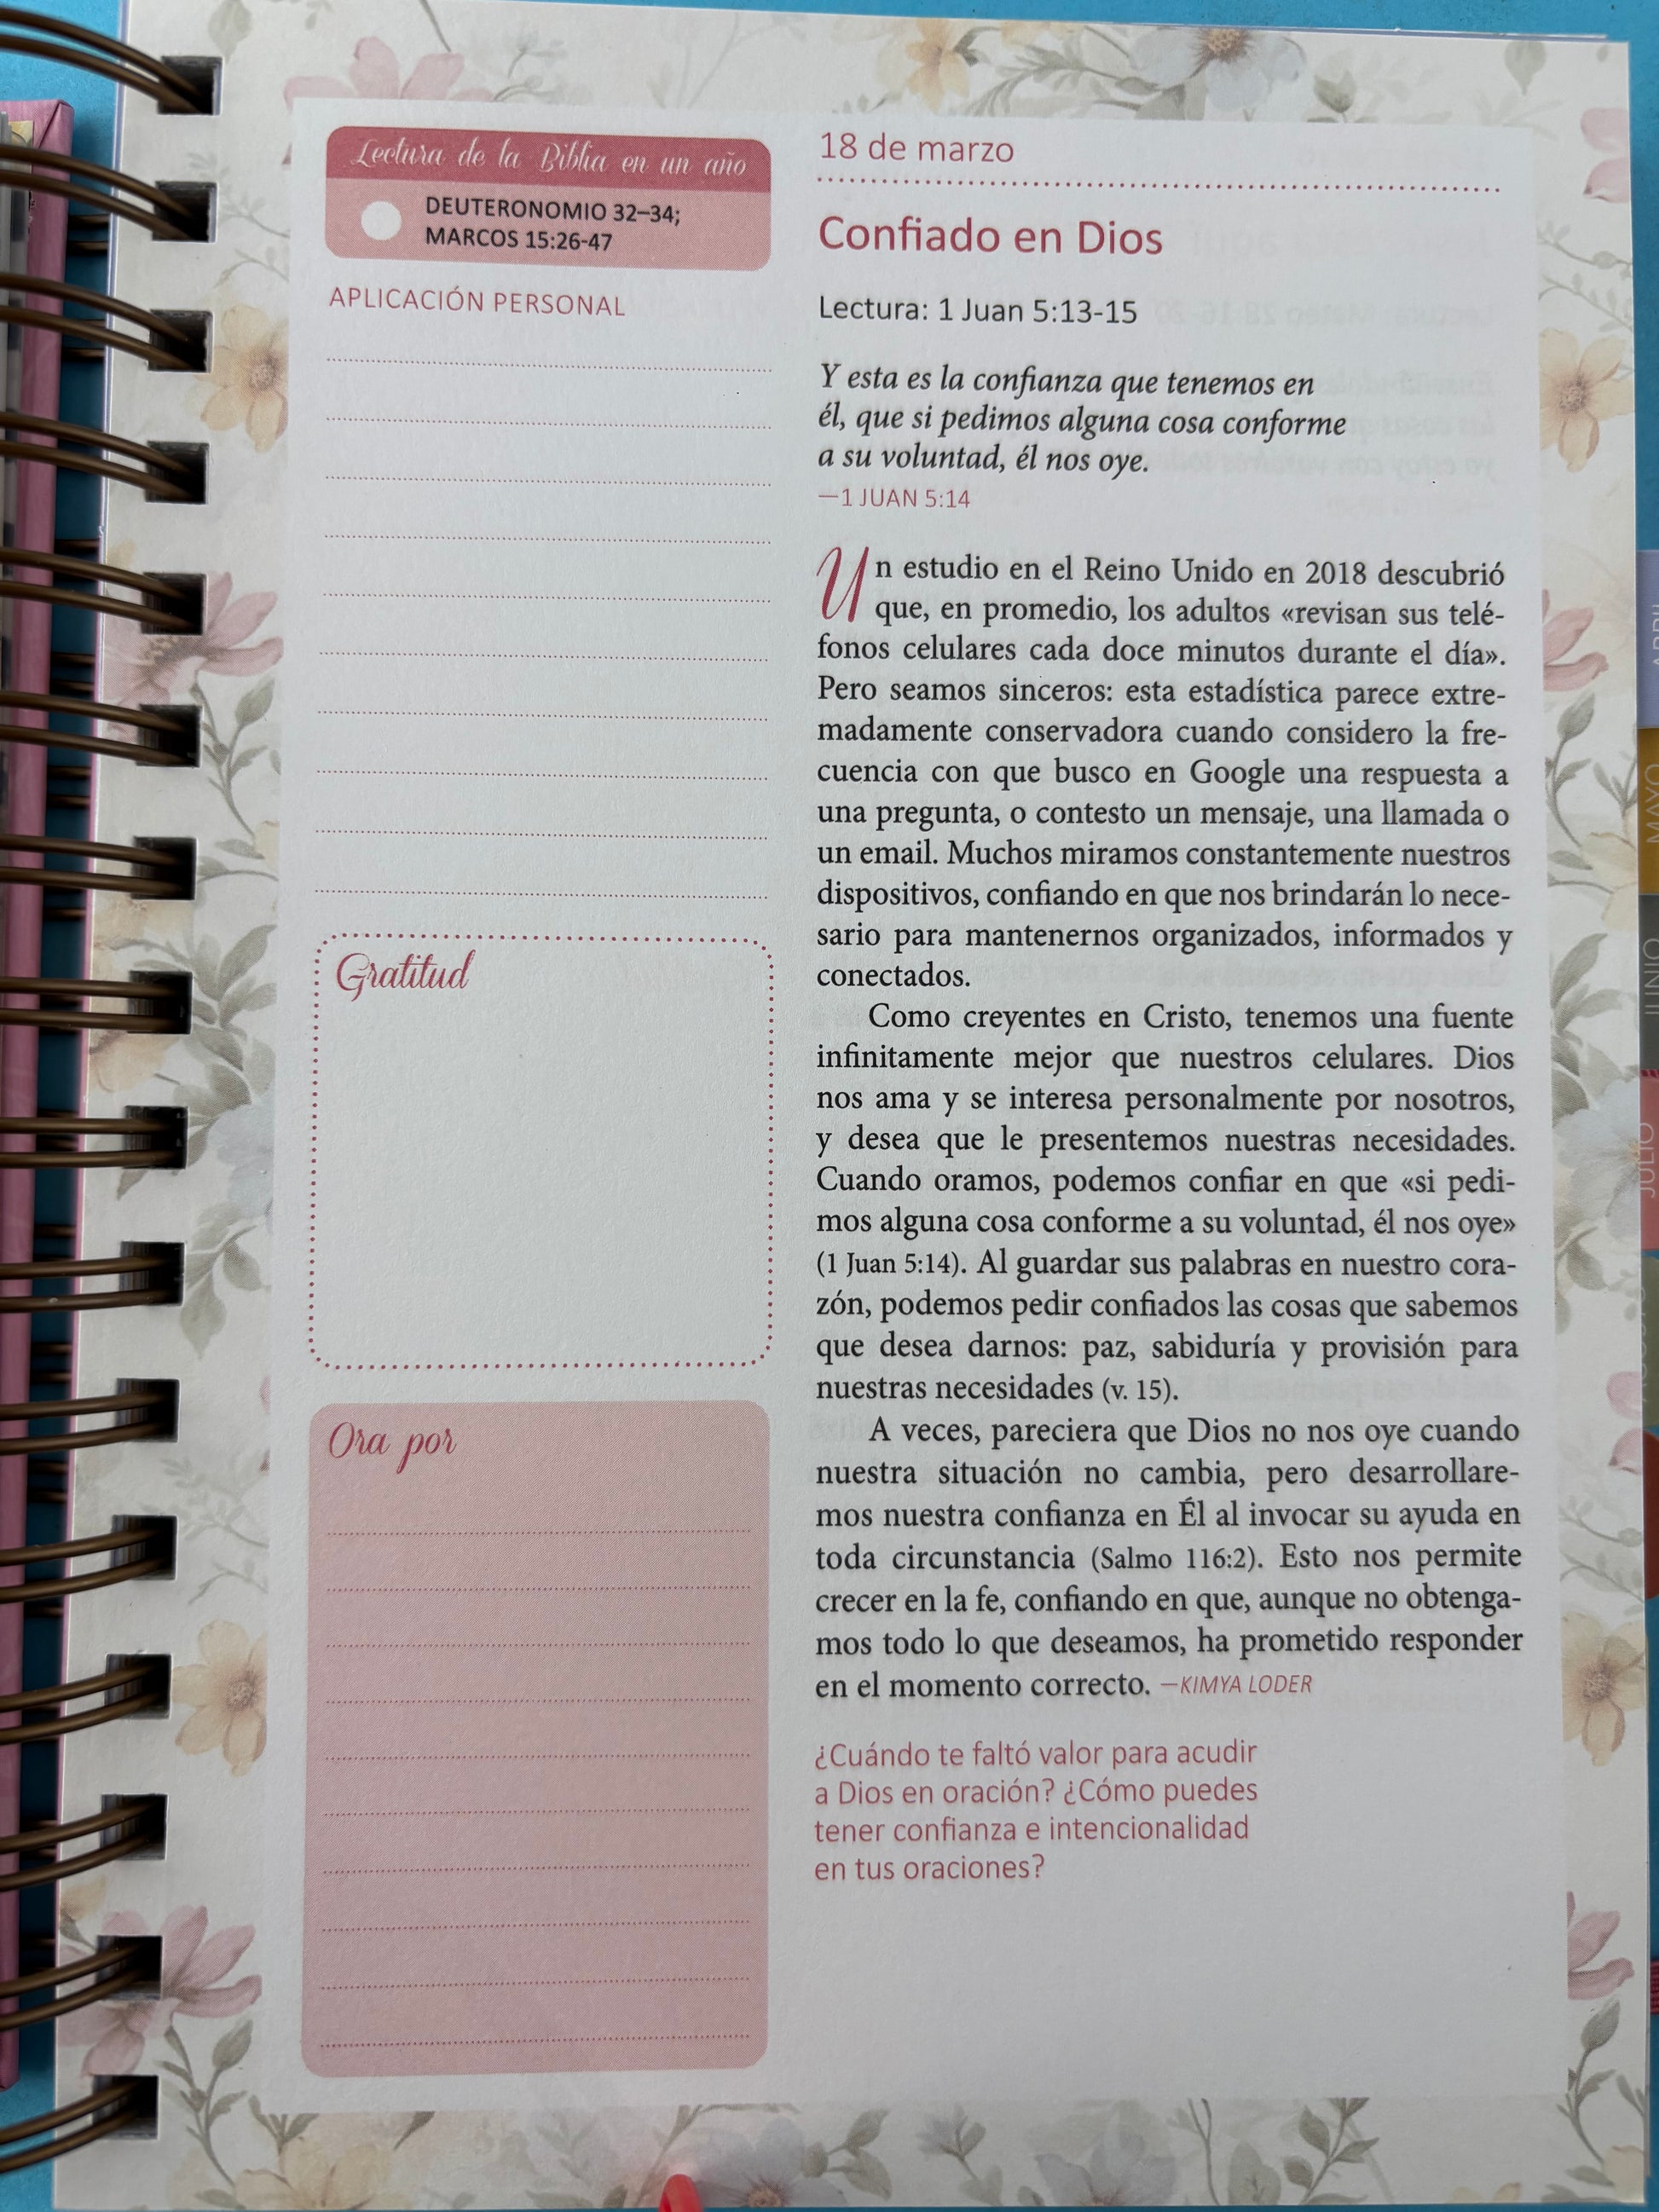 Lectura de la Biblia en un año
DEUTERONOMIO 32–34;
MARCOS 15:26-47
APLICACIÓN PERSONAL
Gratitud
Ora por
18 de marzo
Confiado en Dios
Lectura: 1 Juan 5:13-15
Y esta es la confianza que tenemos en
él, que si pedimos alguna cosa conforme
a su voluntad, él nos oye.
—1 JUAN 5:14
Un estudio en el Reino Unido en 2018 descubrió
que, en promedio, los adultos «revisan sus telé-
fonos celulares cada doce minutos durante el día».
Pero seamos sinceros: esta estadística parece extre-
madamente conservadora cuando considero la fre-
cuencia con que busco en Google una respuesta a
una pregunta, o contesto un mensaje, una llamada o
un email. Muchos miramos constantemente nuestros
dispositivos, confiando en que nos brindarán lo nece-
sario para mantenernos organizados, informados y
conectados.
Como creyentes en Cristo, tenemos una fuente
infinitamente mejor que nuestros celulares. Dios
nos ama y se interesa personalmente por nosotros,
y desea que le presentemos nuestras necesidades.
Cuando oramos, podemos confiar en que «si pedi-
mos alguna cosa conforme a su voluntad, él nos oye»
(1 Juan 5:14). Al guardar sus palabras en nuestro cora-
zón, podemos pedir confiados las cosas que sabemos
que desea darnos: paz, sabiduría y provisión para
nuestras necesidades (v. 15).
A veces, pareciera que Dios no nos oye cuando
nuestra situación no cambia, pero desarrollare-
mos nuestra confianza en Él al invocar su ayuda en
toda circunstancia (Salmo 116:2). Esto nos permite
crecer en la fe, confiando en que, aunque no obtenga-
mos todo lo que deseamos, ha prometido responder
en el momento correcto. —KIMYA LODER
¿Cuándo te faltó valor para acudir
a Dios en oración? ¿Cómo puedes
tener confianza e intencionalidad
en tus oraciones?
MAYO
JUNIO
JULIO